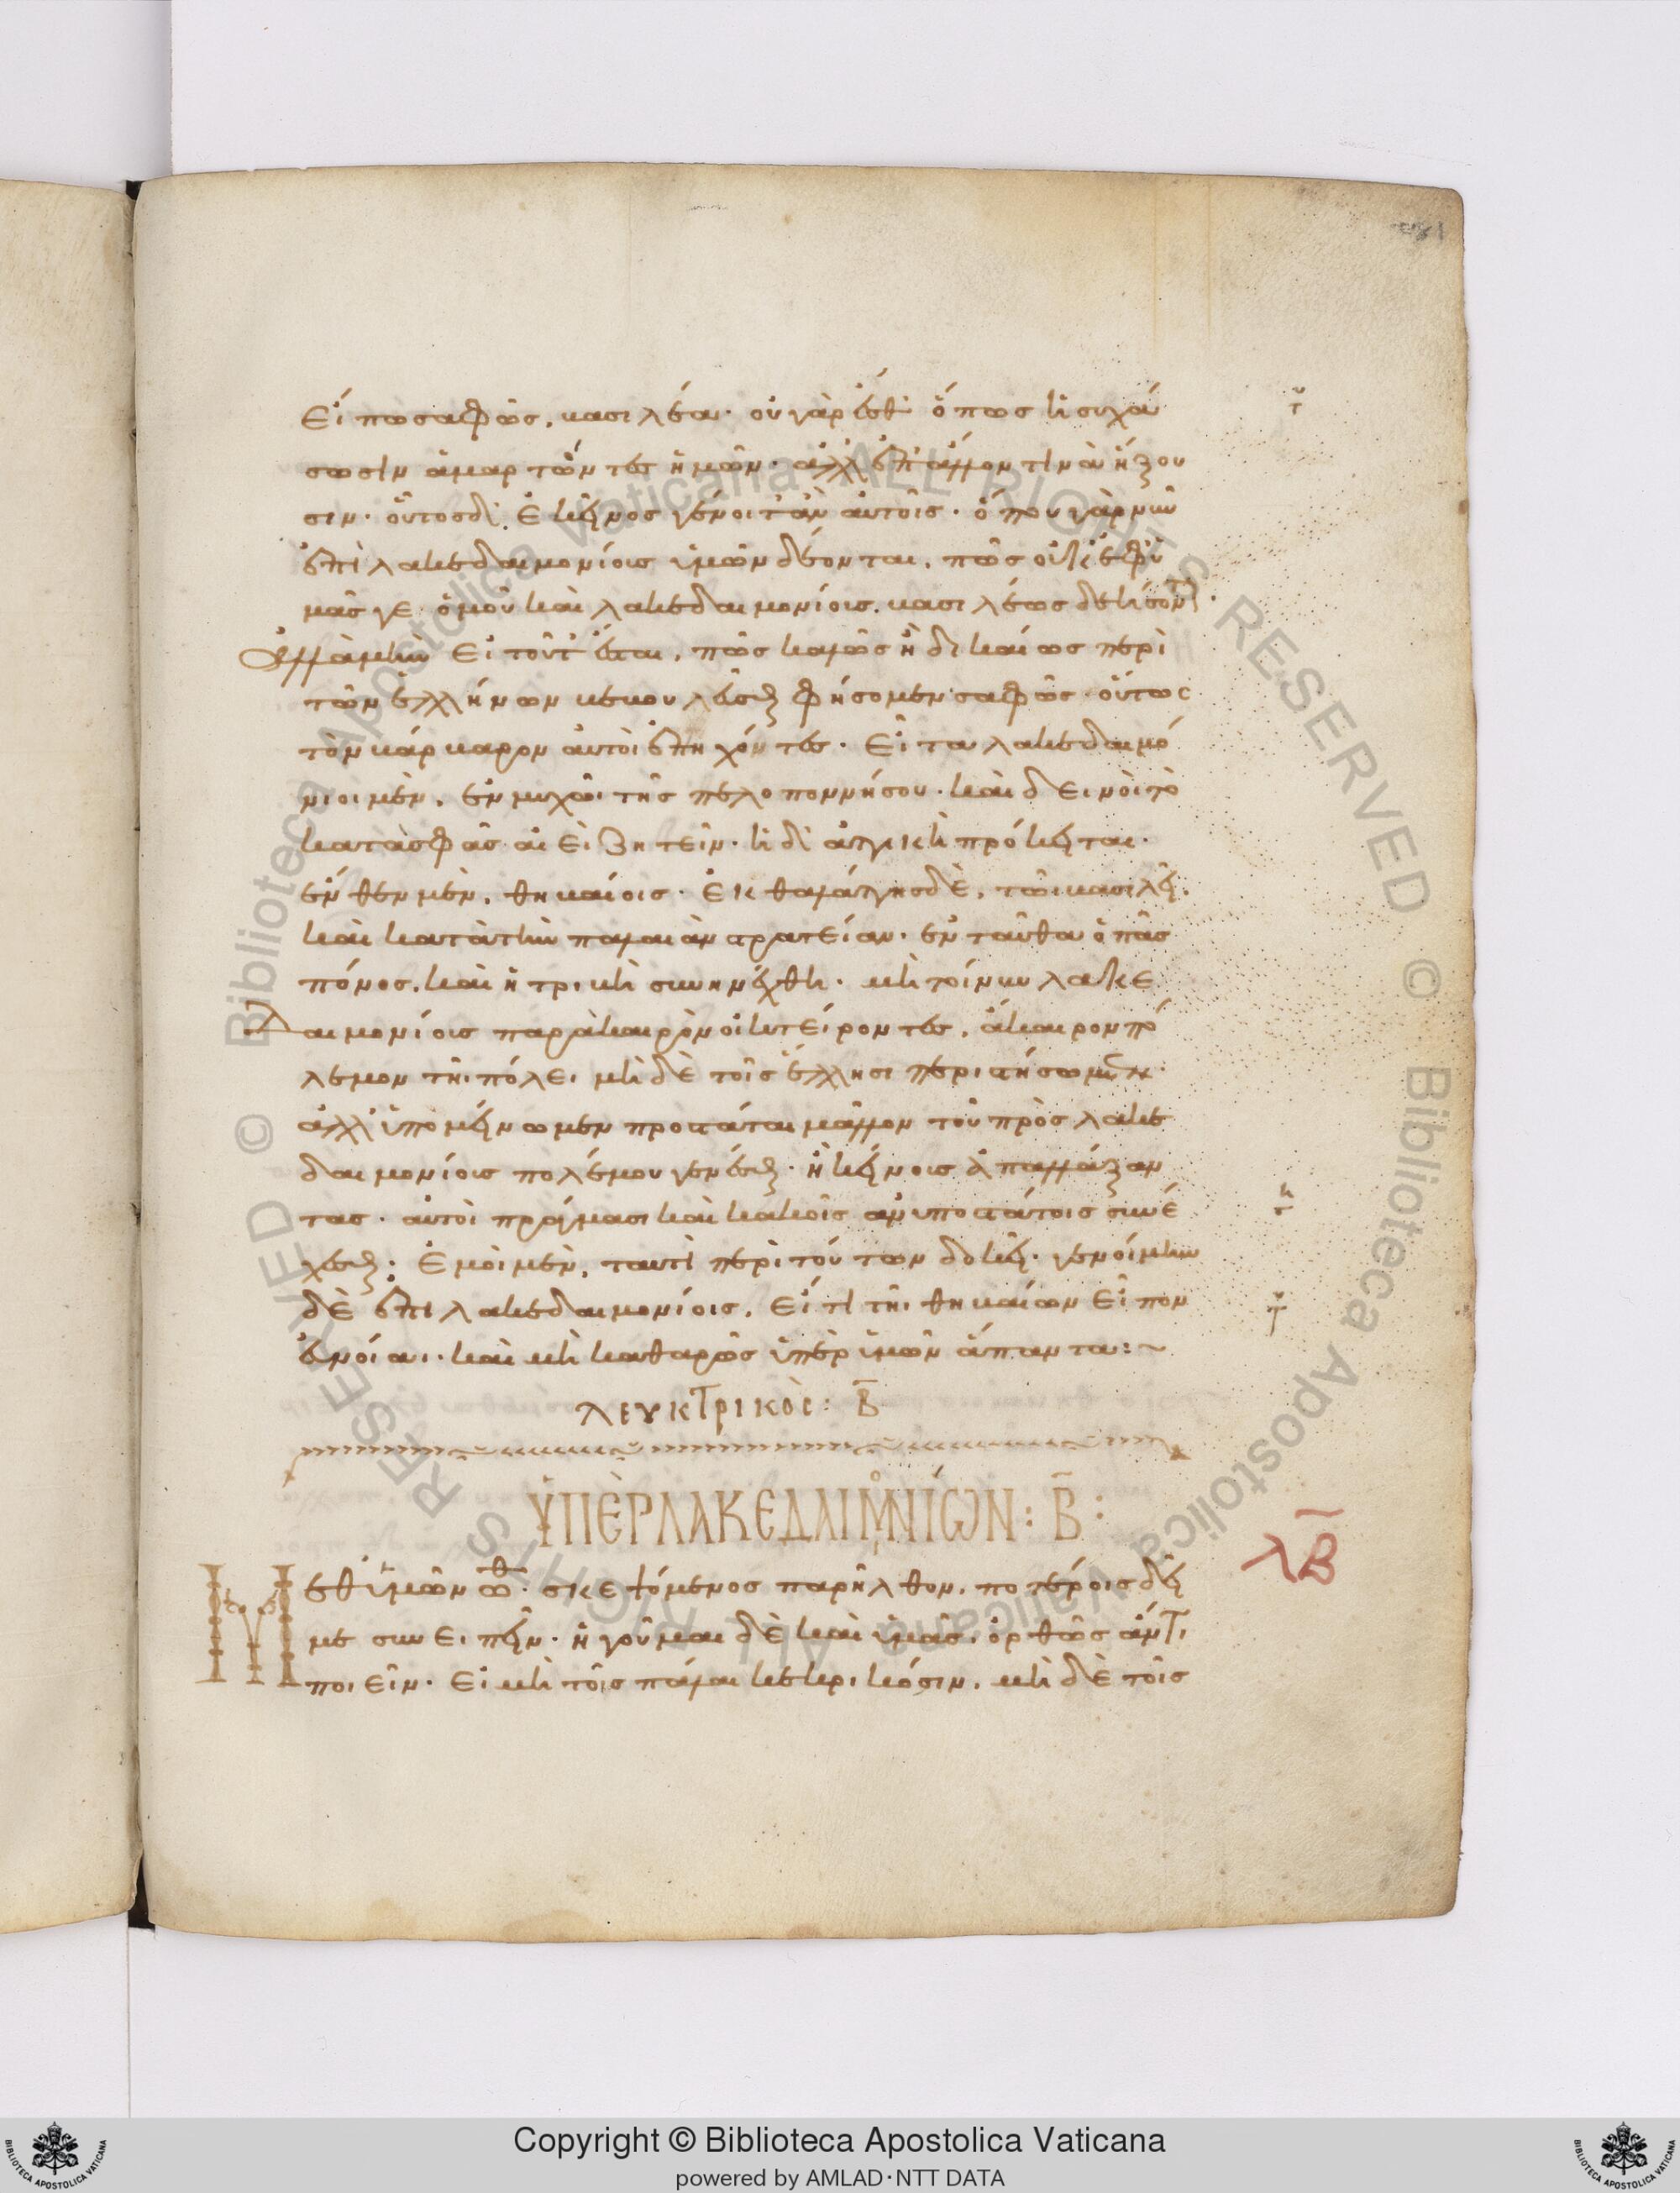 εἴπω σαφῶς, βασιλέα· οὐ γὰρ ἔσθ' ὅπως ἡσυχά
σωσιν ἁμαρτόντες ἡμῶν· ἀλλ' ἐπ' ἄλλον τινὰ ἥξου
σιν· οὗτος δ' ἐκεῖνος γένοιτ' ἂν αὐτοῖς· ὅπου γὰρ νῦν
ἐπὶ λακεδαιμονίοις ὑμῶν δέονται, πῶς οὐκ ἐφ' ὑ
μᾶς γε ὁμοῦ καὶ λακεδαιμονίοις, βασιλέως δεήσονται·
ἀλλὰ μὴν εἰ τοῦτ' ἔσται, πῶς καλῶς ἢ δικαίως περὶ
τῶν ἑλλήνων βεβουλεῦσθαι φήσομεν σαφῶς οὕτως
τὸν βάρβαρον αὐτοὶ ἐπηχόντες· εἶτα λακεδαιμό
νιοι μὲν, ἐν μυχῶι τῆς πελοποννήσου· καὶ δεινοὶ τὸ
κατὰ σφᾶς ἀεὶ ζητεῖν· ἡ δ' ἀττικὴ πρόκειται·
ἔνθεν μὲν, θηβαίοις· ἐκ θαλάττης δὲ, τῶι βασιλεῖ·
καὶ κατὰ τὴν παλαιὰν στρατείαν· ἐνταῦθα ὁ πᾶς
πόνος, καὶ ἡ τριβὴ συνηνέχθη· μὴ τοίνυν λακε
δαιμονίοις παρὰ καιρὸν οἰκτείροντες, ἄκαιρον πό
λεμον τῆι πόλει μὴ δὲ τοῖς ἕλλησι περιστήσωμεν·
ἀλλ' ὑπομείνωμεν προστάται μᾶλλον τοῦ πρὸς λακε
δαιμονίοις πολέμου γενέσθαι· ἢ κείνοις ἀπαλλάξαν
τας· αὐτοὶ πράγμασι καὶ κακοῖς ἀνυποστάτοις συνέ
χεσθαι· ἐμοὶ μὲν, ταυτὶ περὶ τούτων δοκεῖ· γενοίμην
δὲ ἐπὶ λακεδαιμονίοις, εἴ τι τῆι θηβαίων εἶπον
εὐνοίαι· καὶ μὴ καθαρῶς ὑπὲρ ὑμῶν ἅπαντα:~
λευκτρικὸς: Β
ὙΠῈΡ ΛΑΚΕΔΑΙΜΟΝΊΩΝ: Β:
λΒ
Μεθ' ὑμῶν ὦ ἀθ· σκεψόμενος παρῆλθον, ποτέροις δεῖ
με συνειπεῖν· ἡγοῦμαι δὲ καὶ ὑμᾶς, ὀρθῶς ἄν τι
ποιεῖν· εἰ μὴ τοῖς πάλαι κεκρικόσιν, μὴ δὲ τοῖς
Copyright © Biblioteca Apostolica Vaticana
powered by AMLAD·NTT DATA